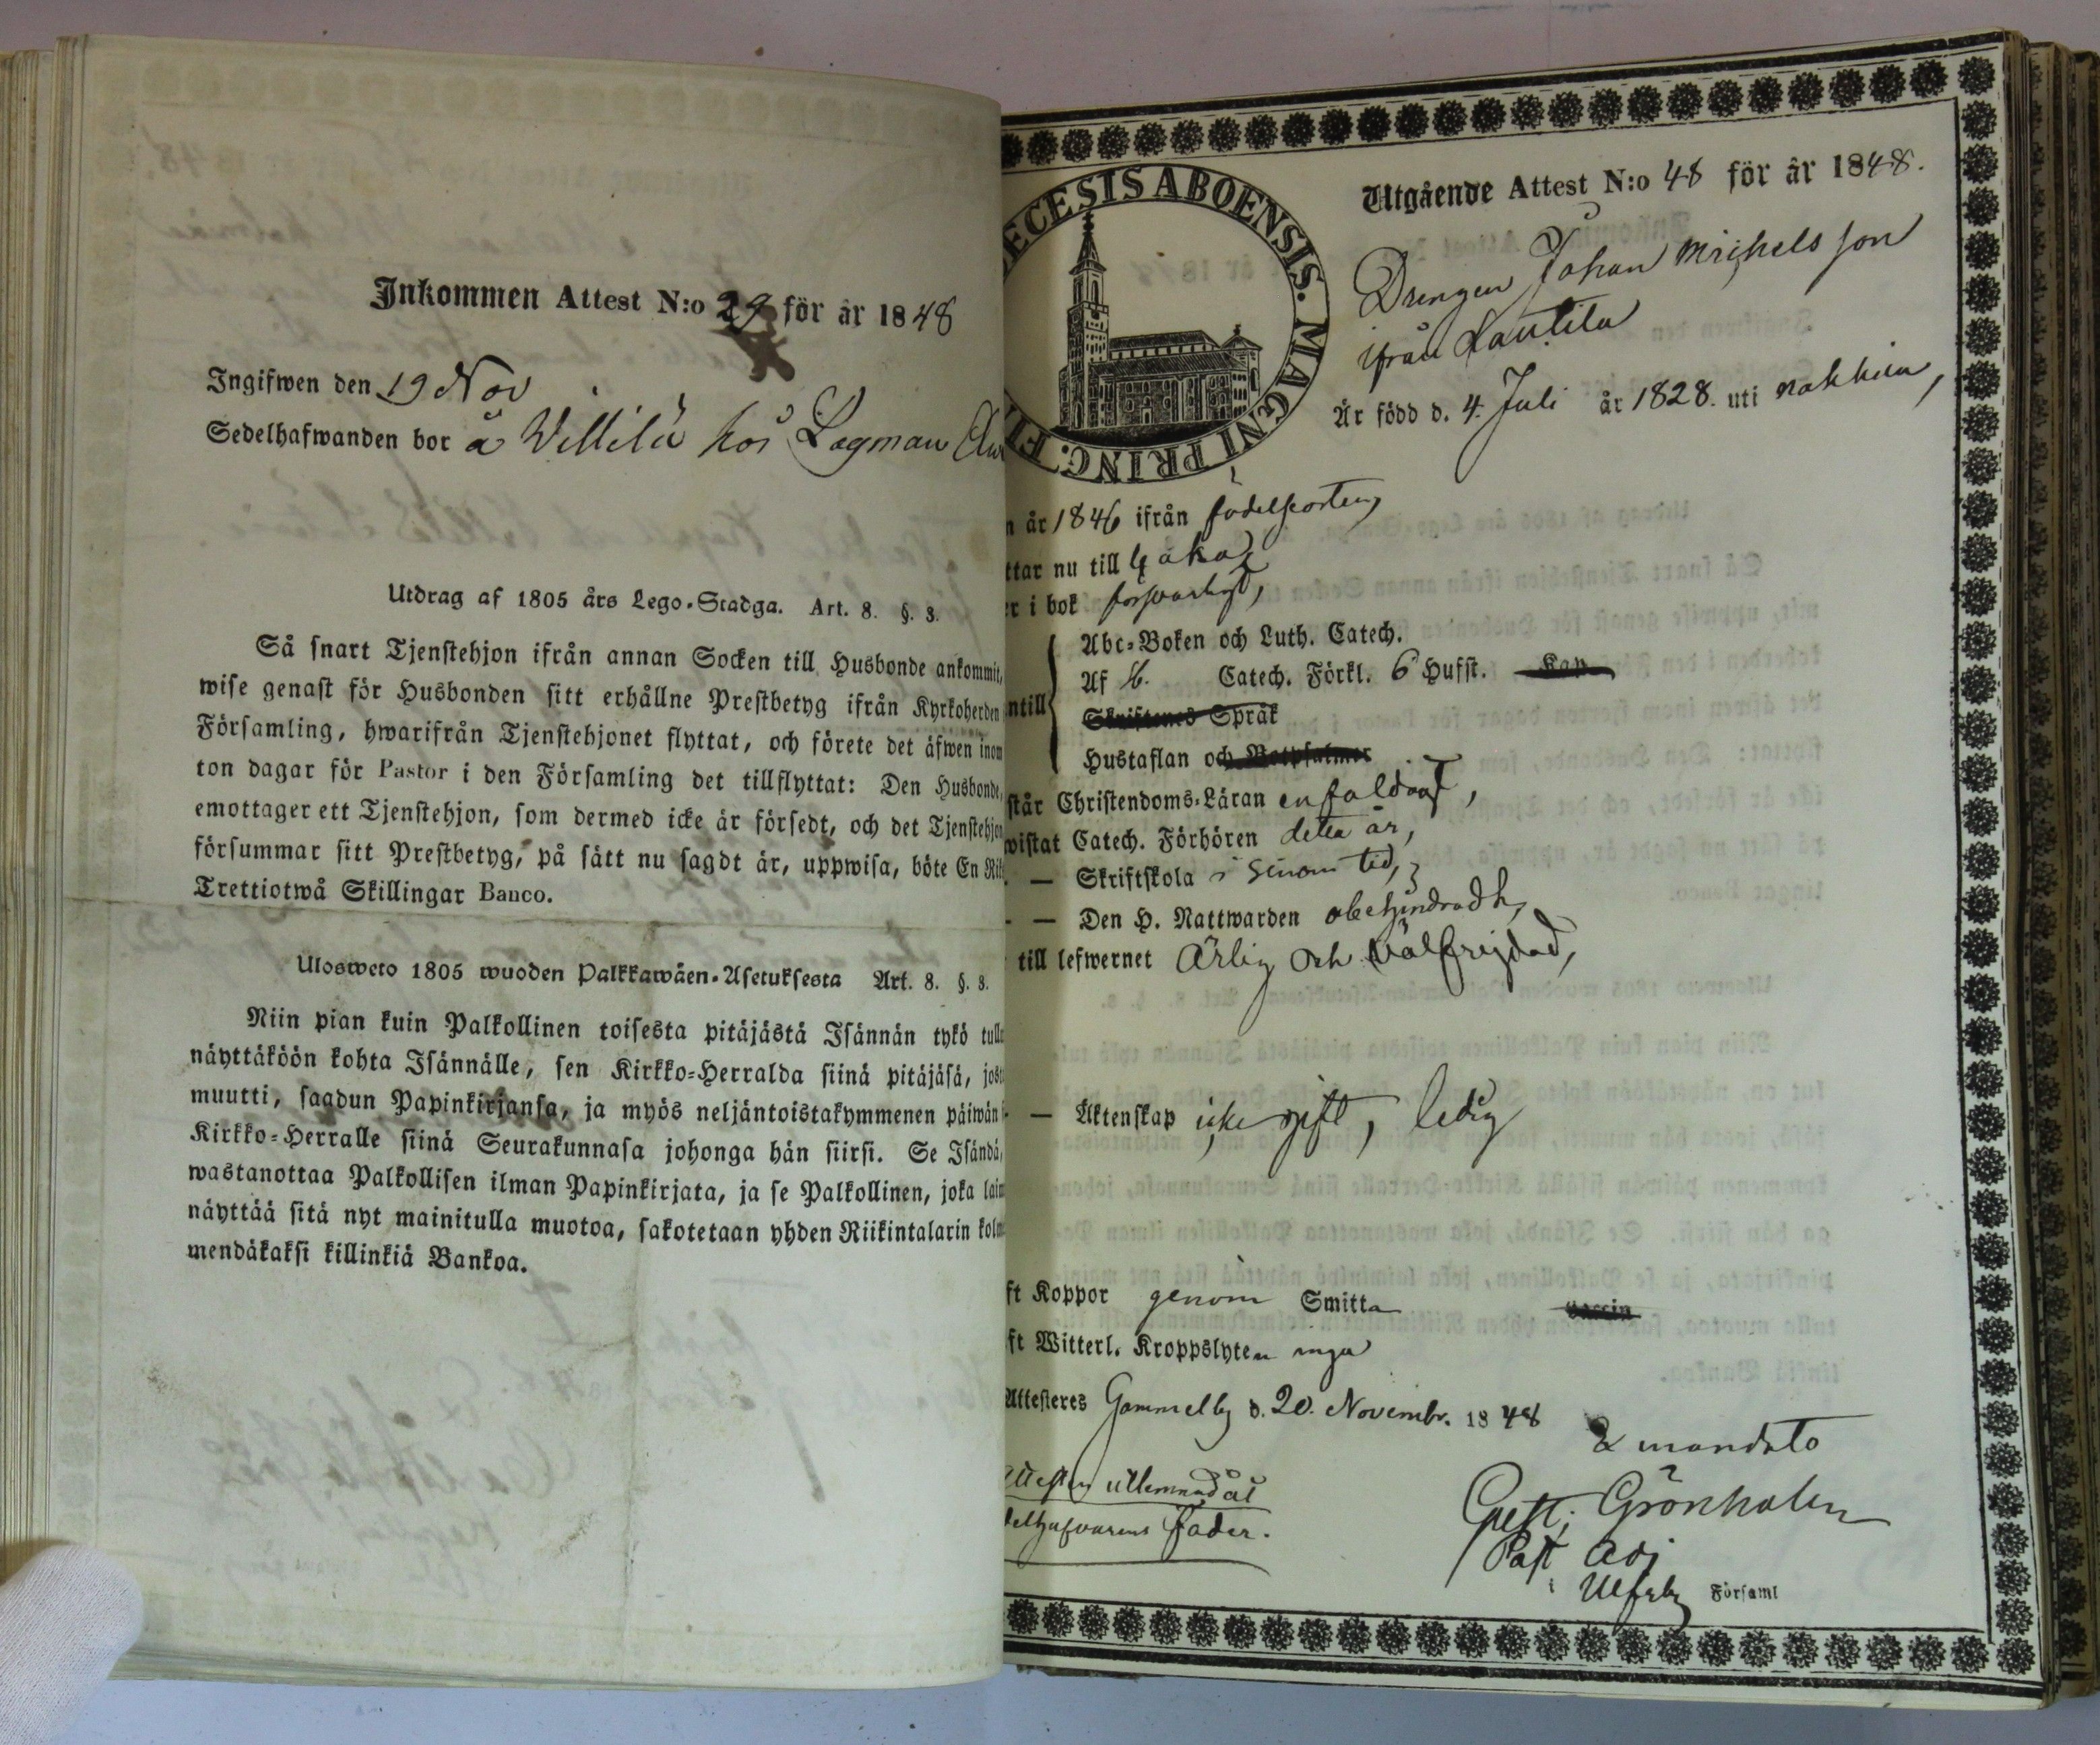 Inkommen Attest N:o 29 för år 1848
Ingifwen den 19 Nov
Sedelhafwanden bor å Villilä hos Lagman
Utdrag af 1805 års Lego-Stadga. Art. 8. §. 8.
Så snart Tjenstehjon ifrån annan Socken till Husbonde ankommit,
wise genast för Husbonden sitt erhållne Prestbetyg ifrån Kyrkoherden
Församling, hwarifrån Tjenstehjonet flyttat, och förete det äfwen inom
ton dagar för Pastor i den Församling det tillflyttat: Den Husbonde,
emottager ett Tjenstehjon, som dermed icke är försedt, och det Tjenstehjon
försummar sitt Prestbetyg, på sätt nu sagdt är, uppwisa, böte En Rik
Trettiotwå Skillingar Banco.
Ulosweto 1805 wuoden Palkkawäen-Asetuksesta Art. 8. §. 8.
Niin pian kuin Palkollinen toisesta pitäjästä Isännän tykö tullu
näyttäköön kohta Isännälle, sen Kirkko-Herralda siinä pitäjäsä, josta
muutti, saadun Papinkirjansa, ja myös neljäntoistakymmenen päiwän
Kirkko-Herralle siinä Seurakunnasa johonga hän siirsi. Se Isändä,
wastanottaa Palkollisen ilman Papinkirjata, ja se Palkollinen, joka laim
näyttää sitä nyt mainitulla muotoa, sakotetaan yhden Riikintalarin kolm
mendäkaksi killinkiä Bankoa.
ECESIS ABOENSIS. MAGNI PRINC. FI
Utgående Attest N:o 48 för år 1848.
Drengen Johan Michelsson
ifrån Lautila
Är född d. 4. Juli år 1828. uti Nakkila,
n år 1846 ifrån födelseorten,
ttar nu till
r i bok försvarligt,
Abc-Boken och Luth. Catech.
Af Sb. Catech. Förkl. 6 Hufst. Kap
ntill
Skriftenes Språk
Hustaflan och Botpsalmer
står Christendoms-Läran enfaldigt,
wistat Catech. Förhören detta år,
— Skriftskola i sinom tid,
- — Den H. Nattwarden obehindradt,
till lefwernet Ärlig och välfrejdad,
— Äktenskap icke gift, ledig
ft Koppor genom Smitta Vaccin
ft Witterl. Kroppslyten inga
Attesteres Gammelby d. 20. Novembr. 1848
Ex mandato
Attesten utlemnad åt
delhafvarens Fader.
Gust. Grönholm
Past. Adj
i Ulfsby Församl